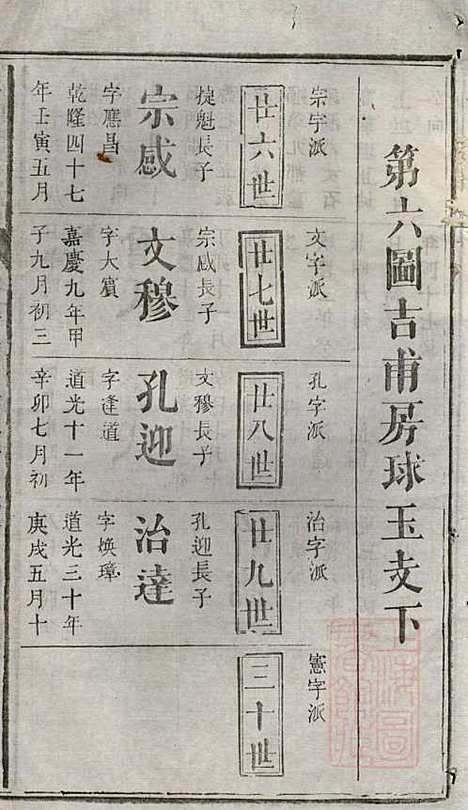 第六圖吉甫房球玉支下
宗字派
廿六世
㨗魁長子
宗感
字應昌
乾隆四十七
年壬寅五月
文字派
廿七世
宗感長子
文穆
字大賔
嘉慶九年甲
子九月初三
孔字派
廿八世
文穆長子
孔迎
字逢道
道光十一年
辛卯七月初
治字派
廿九世
孔迎長子
治達
字煥璋
道光三十年
庚戌五月十
憲字派
三十世